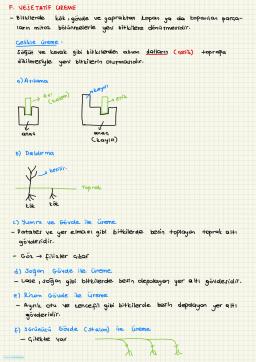 F. VEJETATİF ÜREME
- Bitkilerde kök, gövde ve yapraktan kopan ya da koparılan parça-
ların mitoz bölünmelerle yeni bitkilere dönüşmesidir.
Çelikle üreme:
Söğüt ve kavak gibi bitkilerden alınan dalların (çelik) toprağa
dikilmesiyle yeni bitkilerin oluşmasıdır.
a) Aşılama
anaç
anaç
b) Daldırma
Toprak
kök
kök
c) Yumru ve Gövde ile üreme
- Patates ve yer elması gibi bitkilerde besin toplayan toprak altı
gövdesidir.
- Göz → Filizler çıkar
d) Soğan Gövde ile üreme
- Lale, soğan gibi bitkilerde besin depolayan yer altı gövdesidir.
e) Rizom Gövde ile üreme
- Ayrık otu ve zencefil gibi bitkilerde besin depolayan yer altı
gövdesidir.
f) Sürünücü Gövde (Stolon) ile üreme
- Çilekte var